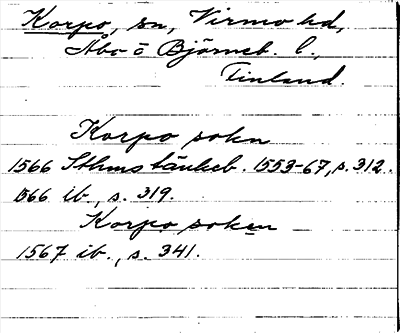 Korpo, sn, Virmo hd,
Åbo o Björneb. l.,
Finland.
Korpo sokn
1566 Sthms tänkeb. 1553-67, s. 312.
1566 ib., s. 319.
Korpo soken
1567 ib., s. 341.